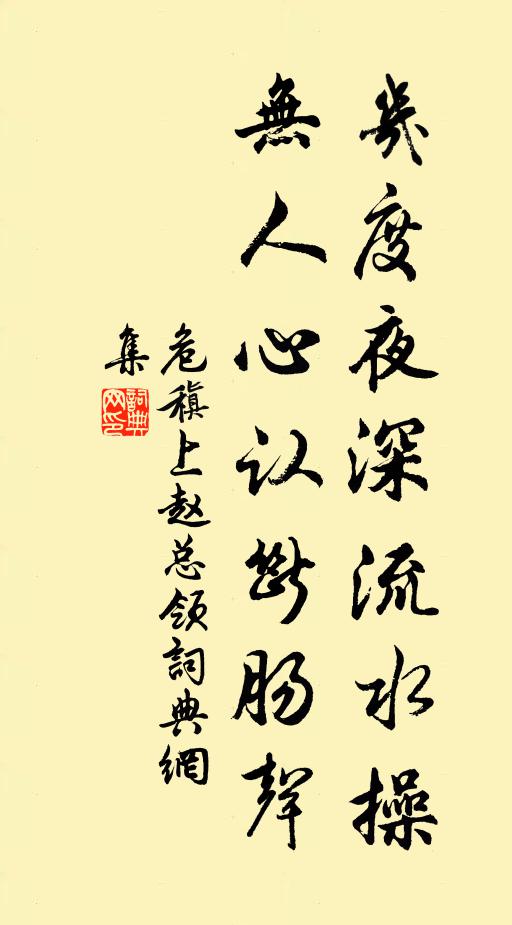 幾度夜深流水操
無人心认斷肠聲
危稹上赵总领詞典網
集
詞典网印